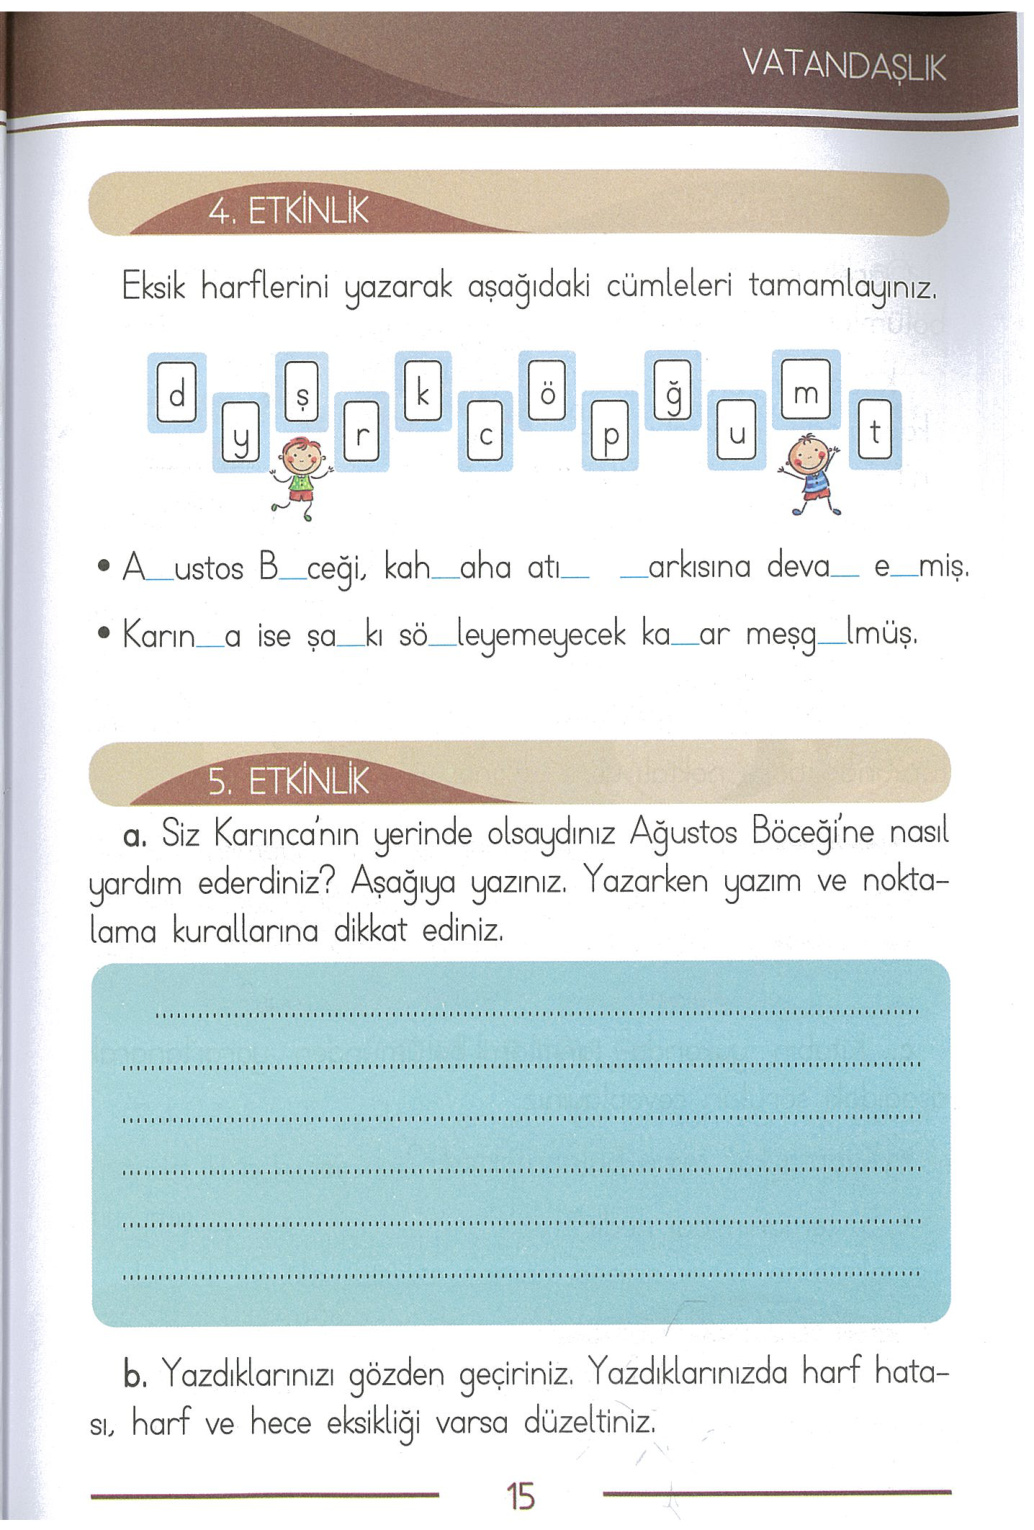 VATANDAŞLIK
4. ETKİNLİK
Eksik harflerini yazarak aşağıdaki cümleleri tamamlayınız.
d ş k ö ğ m
y r c p u t
• A__ustos B__ceği, kah__aha atı__ __arkısına deva__ e__miş.
• Karın__a ise şa__kı sö__leyemeyecek ka__ar meşg__lmüş.
5. ETKİNLİK
a. Siz Karınca'nın yerinde olsaydınız Ağustos Böceği'ne nasıl
yardım ederdiniz? Aşağıya yazınız. Yazarken yazım ve nokta-
lama kurallarına dikkat ediniz.
b. Yazdıklarınızı gözden geçiriniz. Yazdıklarınızda harf hata-
sı, harf ve hece eksikliği varsa düzeltiniz.
15